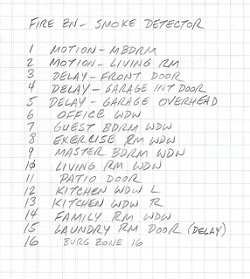 FIRE BN - SMOKE DETECTOR
1 MOTION - MBDRM
2 MOTION - LIVING RM
3 DELAY - FRONT DOOR
4 DELAY - GARAGE INT DOOR
5 DELAY - GARAGE OVERHEAD
6 OFFICE WDW
7 GUEST BDRM WDW
8 EXERCISE RM WDW
9 MASTER BDRM WDW
10 LIVING RM WDW
11 PATIO DOOR
12 KITCHEN WDW L
13 KITCHEN WDW R
14 FAMILY RM WDW
15 LAUNDRY RM DOOR (DELAY)
16 BURG ZONE 16